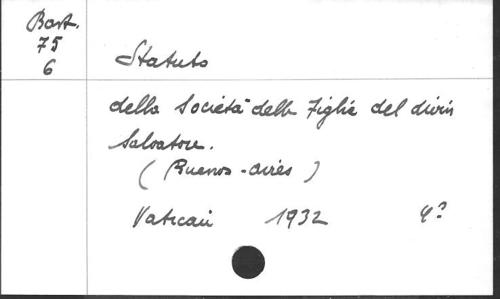 Bart.
75
6
Statuto
della Società delle Figlie del divin
Salvatore.
( Buenos-Aires )
Vatican 1932 4º